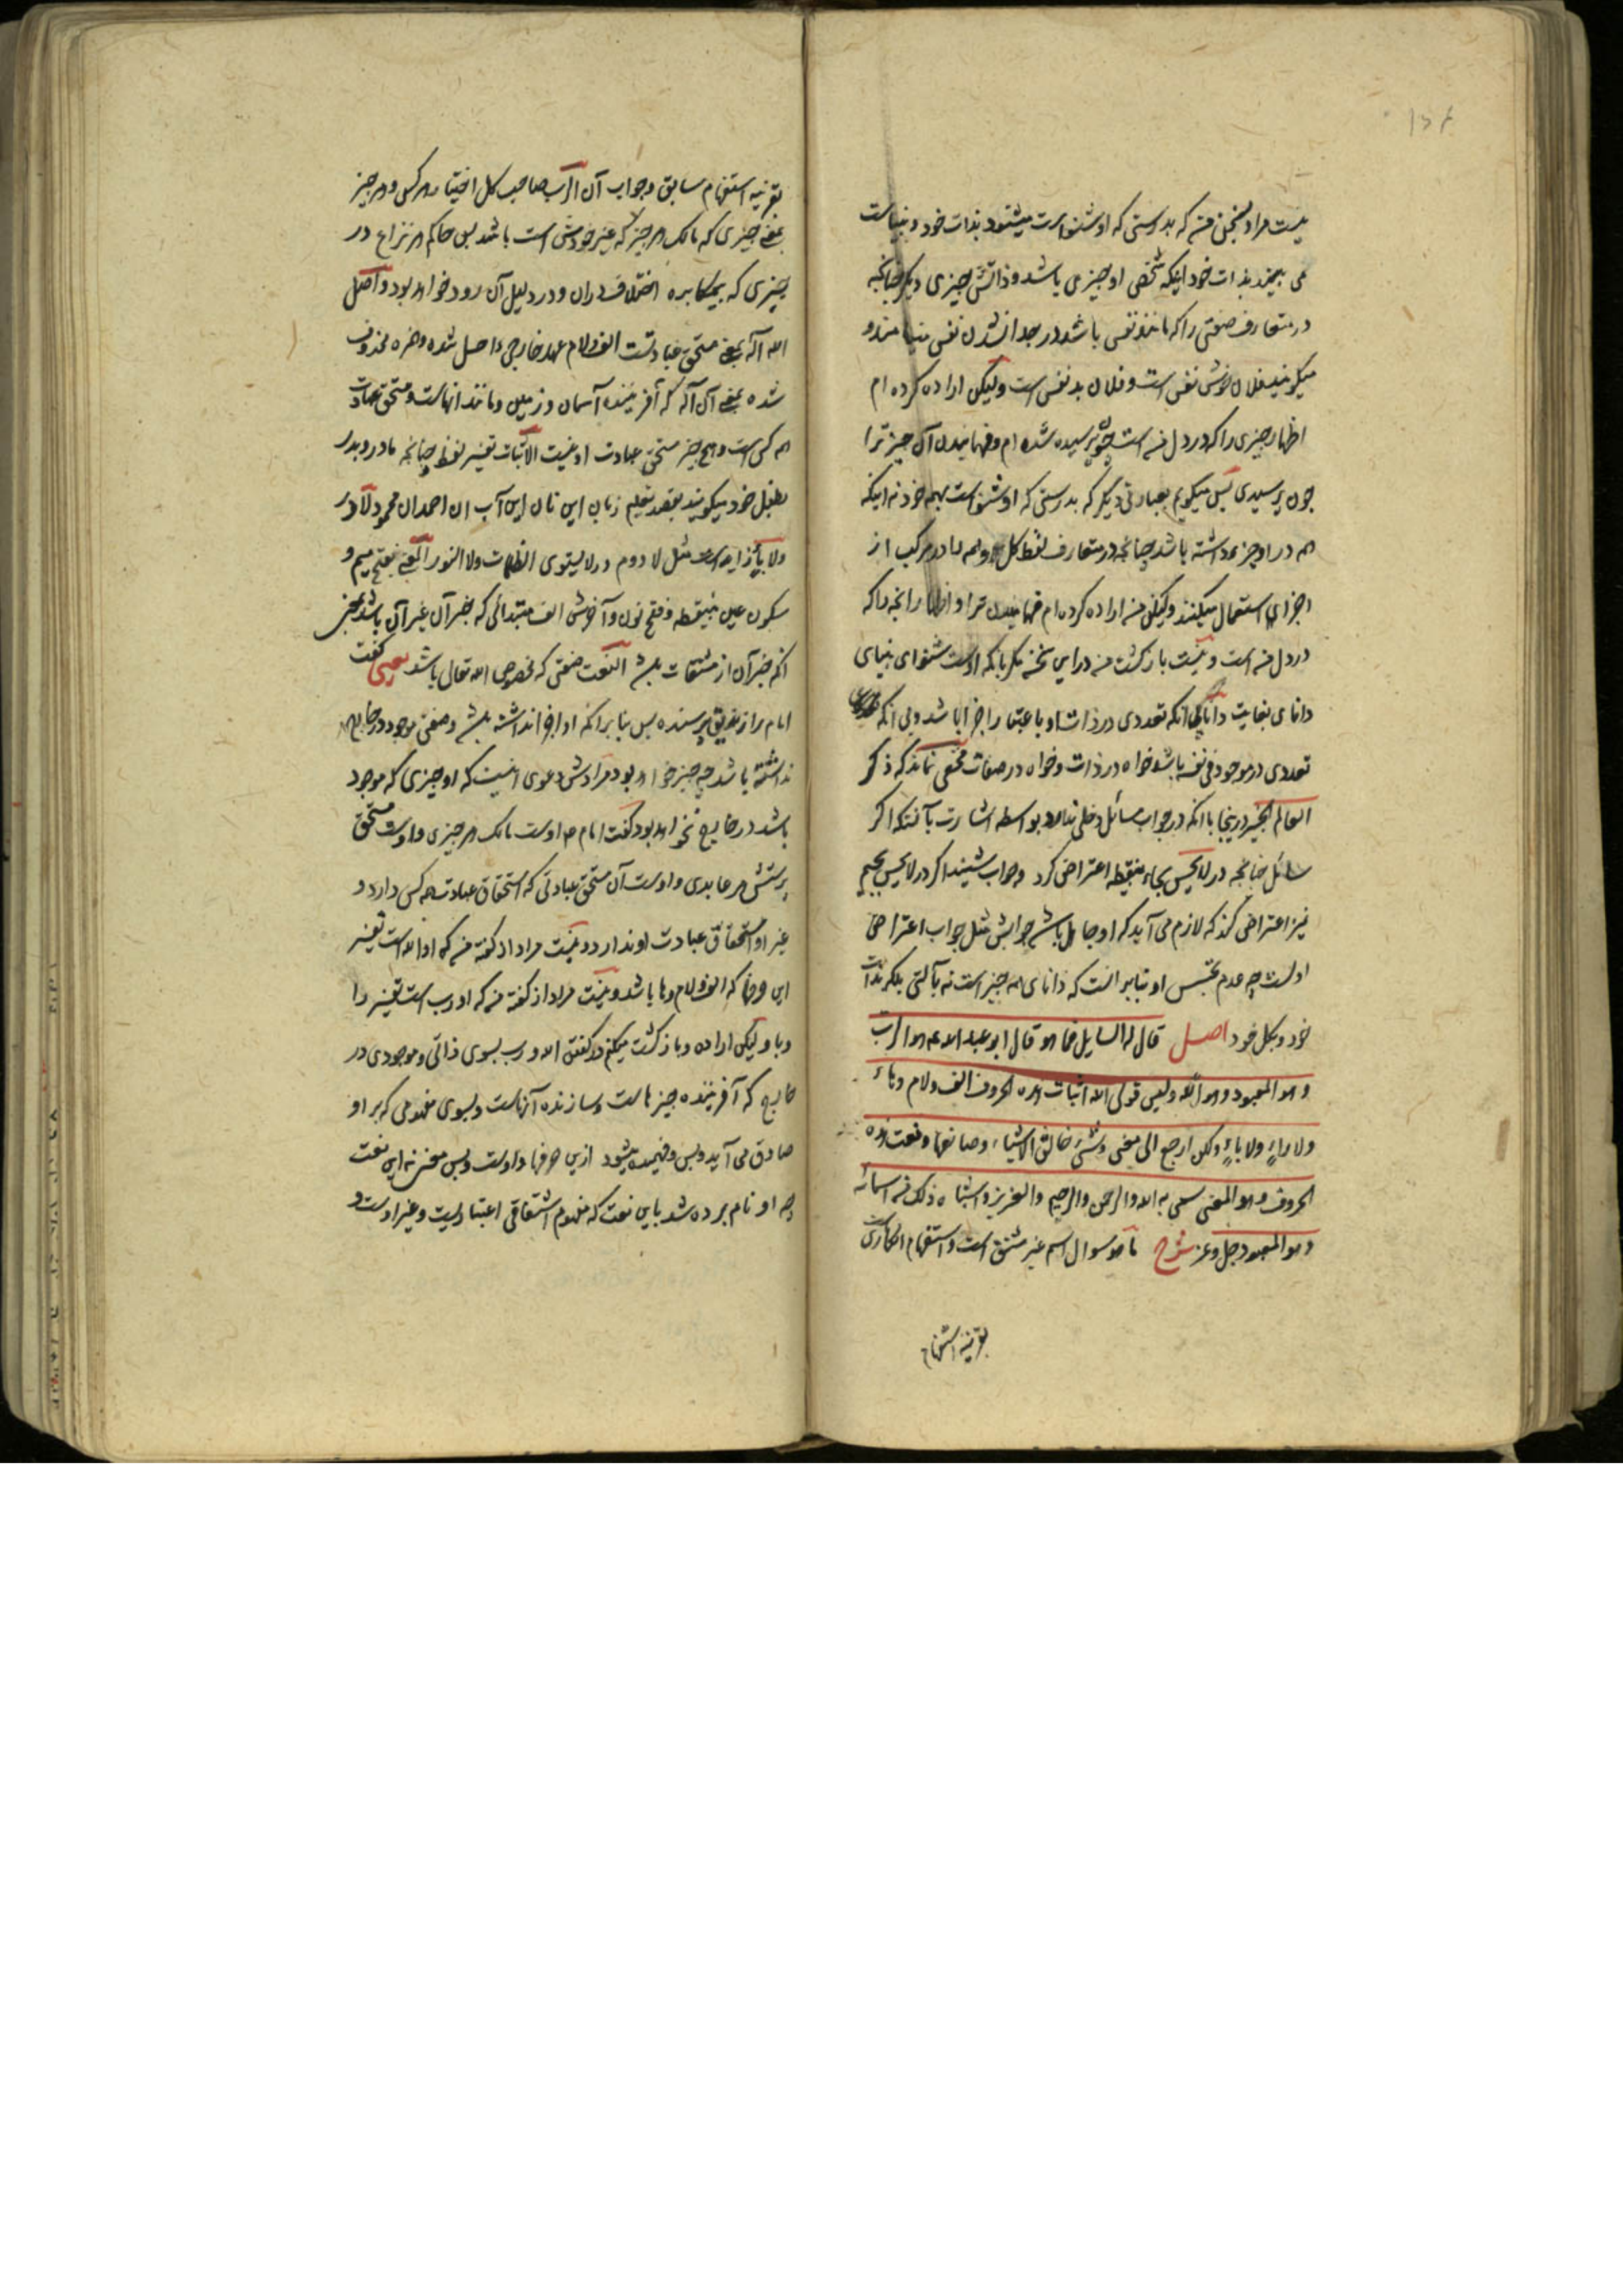 نیست مراد بسخن منه که بدرستی که او شنواست میشنود بذات خود و بیناست
می بیند بذات خود اینکه شخص او چیزی باشد و ذاتش چیزی دیگر چنانچه
در متعارف صفتی را که مانند نفس باشد در جدا نشدن نفس مینامند و
میگویند فلان خوش نفس است و فلان بد نفس است و لیکن اراده کرده ام
اظهار چیزی را که در دل منه است چون پرسیده شده ام و فهمانیدن آن چیز ترا
چون پرسیدی پس میگویم بعبارتی دیگر که بدرستی که او شنواست بهمه خود نه اینکه
همه در او جزء داشته باشد چنانچه در متعارف لفظ کل و همه را در مرکب از
اجزای استعمال میکنند و لیکن منه اراده کرده ام فهمانیدن ترا و اظهار آنچه را که
در دل منه است و نیست بازگشت منه در این سخن مگر بانکه اوست شنوای بینای
دانای بغایت دانا بی آنکه تعددی در ذات او باعتبار اجزا باشد و بی آنکه
تعددی در موجود فی نفسه باشد خواه در ذات و خواه در صفات مخفی نماند که ذکر
العالم الخبیر درینجا با آنکه در جواب سائل دخلی ندارد بواسطه اشارت بآنست که اگر
سائل چنانچه در لا یحس بحاء بینقطه اعتراض کرد و جواب شنید اگر در لا یجس بجیم
نیز اعتراض کند که لازم می آید که او جاهل باشد جوابش مثل جواب اعتراض
اولست چه عدم تجسس او بنابر آنست که دانای همه چیز است نه بآلتی بلکه بذات
خود و بکل خود اصل قال له السایل فما هو قال ابو عبد الله ع هو الرب
و هو المعبود و هو الله و لیس قولی الله اثبات هذه الحروف الف و لام و هاء
و لا راء و لا باء و لکن ارجع الی معنی و شیء خالق الاشیاء و صانعها و نعت هذه
الحروف و هو المعنی سمی به الله و الرحمن و الرحیم و العزیز و اشباه ذلک منه اسمائه
و هو المعبود جل و عز شرح ما هو سوال اسم غیر مشتق است و استفهام انکاریست
بقرینه استفهام
بقرینه استفهام سابق و جواب آن الرب صاحب کل اختیار هر کس و هر چیز
یعنی چیزی که مالک هر چیز که غیر خودش است باشد پس حاکم هر نزاع در
چیزی که بیمکابره اختلاف در آن و در دلیل آن رود خواهد بود و اصل
الله اله یعنی مستحق عبادتست الف و لام عهد خارجی داخل شده و همزه محذوف
شده یعنی آن اله که آفریننده آسمان و زمین و مانند آنهاست و مستحق عبادت
همه کس است و هیچ چیز مستحق عبادت او نیست الاثبات تفسیر لفظ چنانچه مادر و پدر
بطفل خود میگویند بقصد تعلیم زبان این نان این آب آن احمد آن محمود لا در
ولا باء زایده است مثل لا دوم در لا یستوی الظلمات ولا النور المعنی بفتح میم و
سکون عین بینقطه و فتح نون و آخرش الف مبتدائی که خبر آن غیر آن باشد یعنی
آنکه خبر آن از مشتقات باشد النعت صفتی که مخصوص الله تعالی باشد یعنی گفت
امام را از زندیق پرسنده پس بنا بر آنکه او اجزا نداشته باشد و صفتی موجود در خارج
نداشته باشد چه چیز خواهد بود مرادش دعوی اینست که او چیزی که موجود
باشد در خارج نخواهد بود گفت امام ع اوست مالک هر چیزی و اوست مستحق
پرستش هر عابدی و اوست آن مستحق عبادتی که استحقاق عبادت همه کس دارد و
غیر او استحقاق عبادت او ندارد و نیست مراد از گفته منه که او الله است تفسیر
این حرفها که الف و لام و ها باشد و نیست مراد از گفته منه که او رب است تفسیر را
و با و لیکن اراده و بازگشت میکنم در گفتن الله و رب بسوی ذاتی و موجودی در
خارج که آفریننده چیزهاست و سازنده آنهاست و بسوی مفهومی که بر او
صادق می آید و بس و فهمیده میشود ازین حرفها و اوست و بس معنی نه این نعت
چه او نام برده شد باین نعت که مفهوم اشتقاقی اعتباریست و غیر اوست و